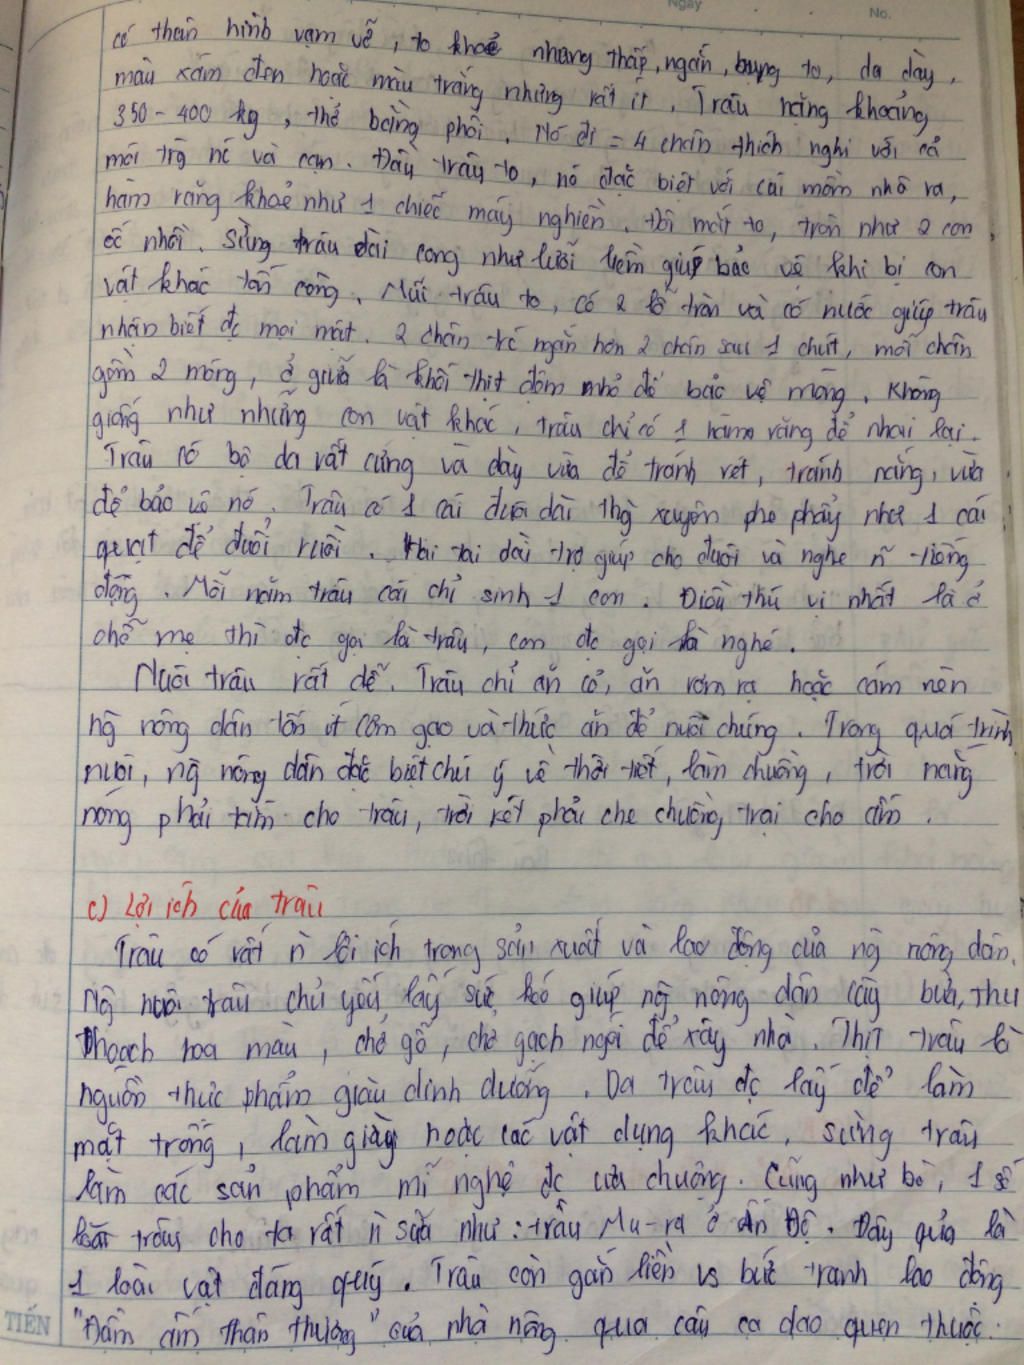 Ngày
No.
có thân hình vạm vỡ, to khoẻ nhưng thấp, ngắn, bụng to, da dày,
màu xám đen hoặc màu trắng nhưng rất ít. Trâu nặng khoảng
350 - 400 kg, thở bằng phổi. Nó đi = 4 chân thích nghi với cả
môi trg nc và cạn. Đầu trâu to, nó đặc biệt với cái mồm nhô ra,
hàm răng khoẻ như 1 chiếc máy nghiền. Đôi mắt to, tròn như 2 con
ốc nhồi. Sừng trâu dài cong như lưỡi liềm giúp bảo vệ khi bị con
vật khác tấn công. Mũi trâu to, có 2 lỗ tròn và có nước giúp trâu
nhận biết đc mọi mặt. 2 chân trc ngắn hơn 2 chân sau 1 chút, mỗi chân
gồm 2 móng, ở giữa là khối thịt đệm nhỏ để bảo vệ móng. Không
giống như những con vật khác, trâu chỉ có 1 hàm răng để nhai lại.
Trâu có bộ da rất cứng và dày vừa để tránh rét, tránh nắng, vừa
để bảo vệ nó. Trâu có 1 cái đuôi dài thg xuyên phe phẩy như 1 cái
quạt để đuổi ruồi. Hai tai dài trợ giúp cho đuôi và nghe n̄ tiếng
động. Mỗi năm trâu cái chỉ sinh 1 con. Điều thú vị nhất là ở
chỗ mẹ thì đc gọi là trâu, con đc gọi là nghé.
Nuôi trâu rất dễ. Trâu chỉ ăn cỏ, ăn rơm rạ hoặc cám nên
ng nông dân tốn ít cơm gạo và thức ăn để nuôi chúng. Trong quá trình
nuôi, ng nông dân đặc biệt chú ý về thời tiết, làm chuồng, trời nắng
nóng phải tắm cho trâu, trời rét phải che chuồng trại cho ấm.
c) Lợi ích của trâu
Trâu có rất n̄ lợi ích trong sản xuất và lao động của ng nông dân.
Ng nuôi trâu chủ yếu lấy sức kéo giúp ng nông dân cày bừa, thu
hoạch hoa màu, chở gỗ, chở gạch ngói để xây nhà. Thịt trâu là
nguồn thực phẩm giàu dinh dưỡng. Da trâu đc lấy để làm
mặt trống, làm giày hoặc các vật dụng khác. Sừng trâu
làm các sản phẩm mĩ nghệ đc ưa chuộng. Cũng như bò, 1 số
trâu cho ta rất n̄ sữa như: trâu Mu-ra ở Ấn Độ. Đây quả là
1 loài vật đáng quý. Trâu còn gắn liền vs bức tranh lao động
"Đầm ấm thân thương" của nhà nông qua câu ca dao quen thuộc:
TIẾN